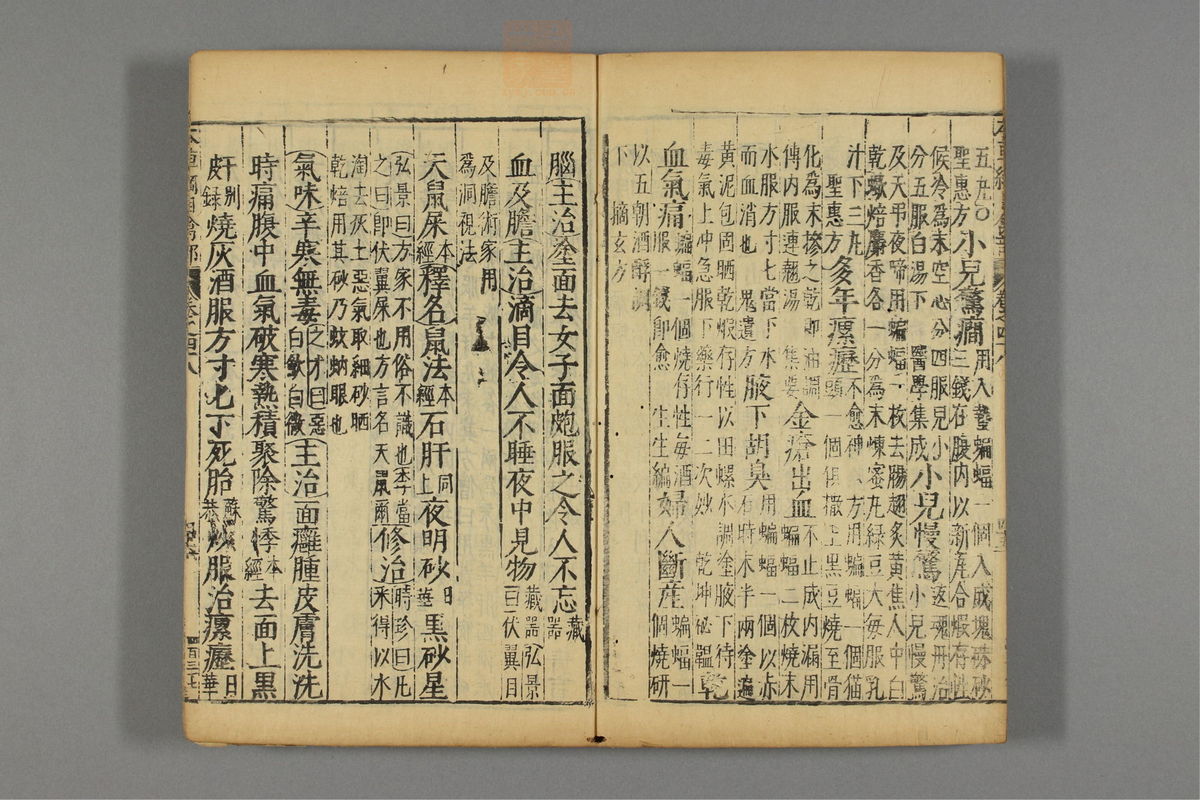 五九〇聖惠方小兒驚癇用入蟄蝙蝠一個入成塊硃砂三錢在腹內以新瓦合煆存性
候冷為末空心分四服兒小分五服白湯下醫學集成小兒慢驚返魂丹治小兒慢驚
及天弔夜啼用蝙蝠一枚去腸翅炙黃焦人中白乾蠍焙麝香各一分為末煉蜜丸綠豆大每服乳
汁下三丸聖惠方多年瘰癧不愈神方用蝙蝠一個猫頭一個俱撒上黑豆燒至骨
化為末摻之乾即油調傅內服連翹湯集要金瘡出血不止成內漏用蝙蝠二枚燒末
水服方寸七當下水而血消也鬼遺方腋下胡臭用蝙蝠一個以赤末半兩塗遍
黃泥包固晒乾煆存性以田螺水調塗腋下待毒氣上冲急服下藥行一二次妙乾坤秘韞乾
血氣痛蝙蝠一個燒存性每酒服一錢即愈生生編婦人斷産蝙蝠一個燒研
以五朝酒醪調下摘玄方
腦主治塗面去女子面皰服之令人不忘藏器
血及膽主治滴目令人不睡夜中見物藏器弘景曰伏翼目
及膽術家用為洞視法
天鼠屎本經釋名鼠法本經石肝同上夜明砂日華黑砂星
弘景曰方家不用俗不識也李當之曰即伏翼屎也方言名天鼠爾修治時珍曰凡采得以水
淘去灰土惡氣取細砂晒乾焙用其砂乃蚊蚋眼也
氣味辛寒無毒之才曰惡白斂白微主治面癰腫皮膚洗洗
時痛腹中血氣破寒熱積聚除驚悸本經去面上黑
皯別錄燒灰酒服方寸匕下死胎蘇恭炒服治瘰癧日華